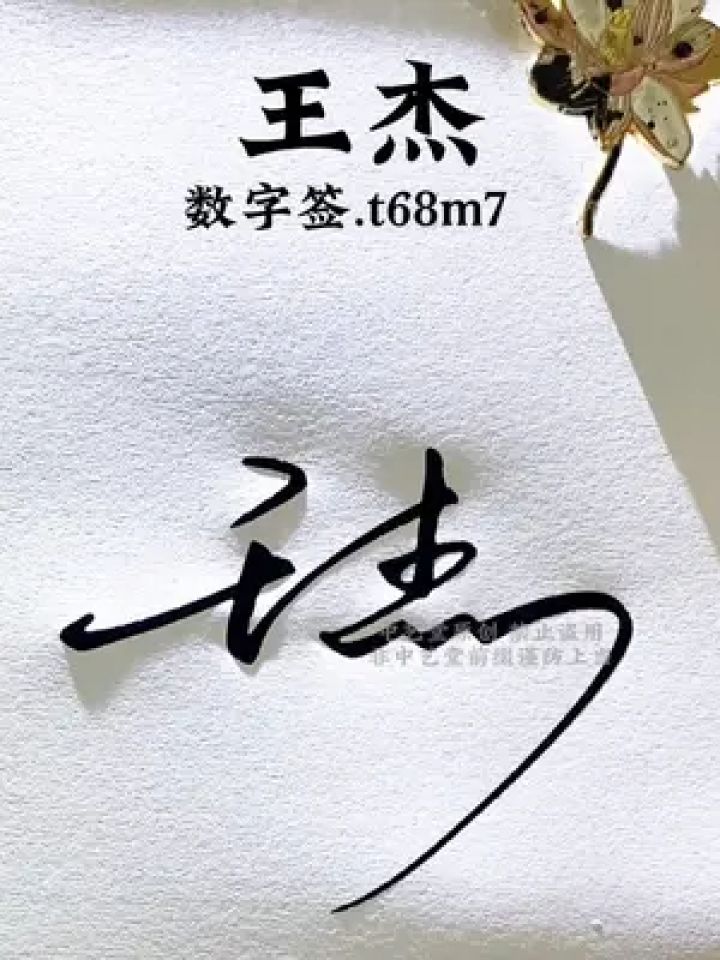 王杰
数字签.t68m7
王杰
中艺堂原创 禁止盗用
非中艺堂前缀谨防上当